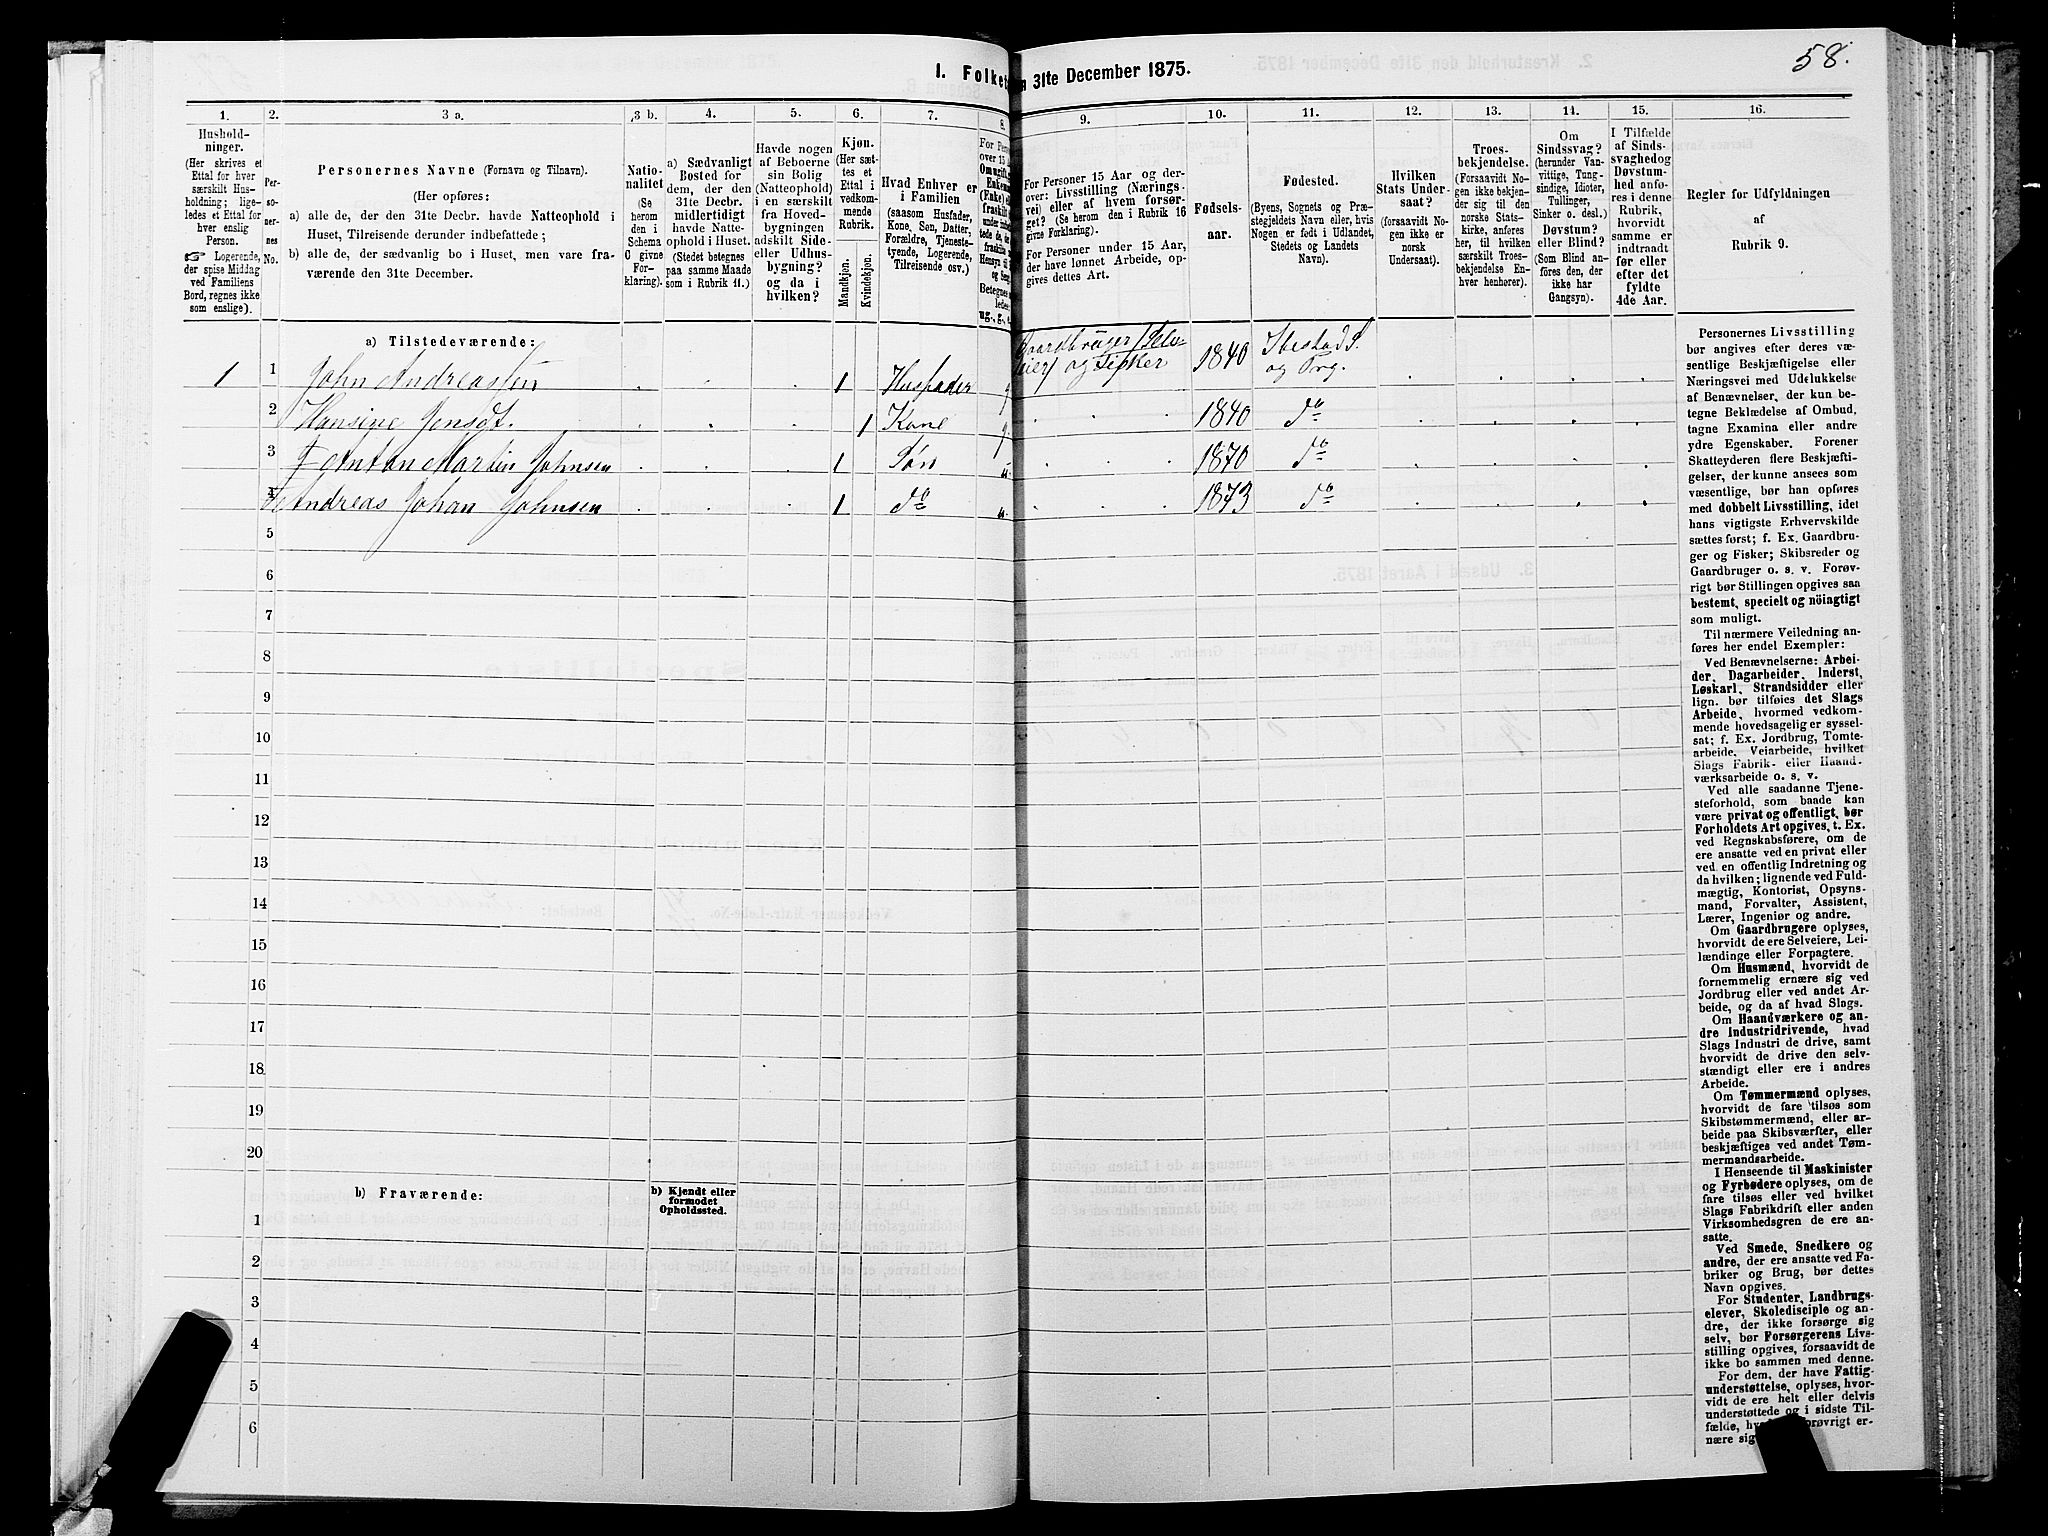 58.
I. Folket
n 31te December 1875.
1.
Hushold-
ninger.
(Her skrives et
Ettal for hver
særskilt Hus-
holdning; lige-
ledes et Ettal for
hver enslig
Person.
☞ Logerende,
der spise Middag
ved Familiens
Bord, regnes ikke
som enslige).
2.
Per-
so-
ner-
nes
No.
3 a.
Personernes Navne (Fornavn og Tilnavn).
(Her opføres:
a) alle de, der den 31te Decbr. havde Natteophold i
Huset, Tilreisende derunder indbefattede;
b) alle de, der sædvanlig bo i Huset, men vare fra-
værende den 31te December.
3 b.
Natio-
nalitet
(Se
herom
den i
Schema
C givne
For-
klaring).
4.
a) Sædvanligt
Bosted for
dem, der den
31te Decbr.
midlertidigt
havde Natte-
ophold i Huset.
(Stedet betegnes
paa samme Maade
som i Rubrik 11.)
5.
Havde nogen
af Beboerne
sin Bolig
(Natteophold)
i en særskilt
fra Hoved-
bygningen
adskilt Side-
eller Udhus-
bygning?
og da i
hvilken?
6.
Kjøn.
(Her sæt-
tes et
Ettal i
vedkom-
mende
Rubrik.
Mandkjøn.
Kvindekjøn.
7.
Hvad Enhver er
i Familien
(saasom Husfader,
Kone, Søn, Datter,
Forældre, Tjeneste-
tyende, Logerende,
Tilreisende osv.)
8.
For Perso
over 15 A
Om ugift,
Enkem
(Enke)
fraskilt
ug., g., e.
9.
For Personer 15 Aar og der-
over: Livsstilling (Nærings-
vei) eller af hvem forsør-
get? (Se herom den i Rubrik 16
givne Forklaring).
For Personer under 15 Aar,
der have lønnet Arbeide, op-
gives dettes Art.
10.
Fødsels-
aar.
11.
Fødested.
(Byens, Sognets og Præ-
stegjeldets Navn eller, hvis
Nogen er født i Udlandet,
Stedets og Landets
Navn).
12.
Hvilken
Stats Under-
saat?
(forsaavidt No-
gen ikke er
norsk
Undersaat).
13.
Troes-
bekjendelse.
(Forsaavidt No-
gen ikke bekjen-
der sig til den
norske Stats-
kirke, anføres
her, til hvilken
særskilt Troes-
bekjendelse En-
hver henhører).
14.
Om
Sindssvag?
(herunder Van-
vittige, Tung-
sindige, Idioter,
Tullinger,
Sinker o. desl.)
Døvstum?
eller Blind?
(Som Blind an-
føres den, der
ikke har
Gangsyn).
15.
I Tilfælde
af Sinds-
svaghed og
Døvstum-
hed anfø-
res i denne
Rubrik,
hvorvidt
samme er
indtraadt
før eller
efter det
fyldte
4de Aar.
16.
Regler for Udfyldningen
af
Rubrik 9.
a) Tilstedeværende:
1 1 John Andreassen 1 Husfader g Gaardbruger (Selv-
eier) og Fisker 1840 Ibestad S.
og Prg.
2 Hansine Jensdt. 1 Kone g 1840 do
3 Anton Martin Johnsen 1 Søn u. 1870 do
4 Andreas Johan Johnsen 1 do u. 1873 do
5
6
7
8
9
10
11
12
13
14
15
16
17
18
19
20
b) Fraværende:
b) Kjendt eller
formodet
Opholdssted.
1
2
3
4
5
6
Personernes Livsstilling
bør angives efter deres væ-
sentlige Beskjæftigelse eller
Næringsvei med Udelukkelse
af Benævnelser, der kun be-
tegne Beklædelse af Ombud,
tagne Examina eller andre
ydre Egenskaber. Forener
Skatteyderen flere Beskjæfti-
gelser, der kunne ansees som
væsentlige, bør han opføres
med dobbelt Livsstilling, idet
hans vigtigste Erhvervskilde
sættes først; f. Ex. Gaardbru-
ger og Fisker; Skibsreder og
Gaardbruger o. s. v. Forøv-
rigt bør Stillingen opgives saa
bestemt, specielt og nöiagtigt
som muligt.
Til nærmere Veiledning an-
føres her endel Exempler:
Ved Benævnelserne: Arbei-
der, Dagarbeider, Inderst,
Løskarl, Strandsidder eller
lign. bør tilføies det Slags
Arbeide, hvormed vedkom-
mende hovedsagelig er syssel-
sat; f. Ex. Jordbrug, Tomte-
arbeide, Veiarbeide, hvilket
Slags Fabrik- eller Haand-
værksarbeide o. s. v.
Ved alle saadanne Tjene-
steforhold, som baade kan
være privat og offentligt, bør
Forholdets Art opgives, t. Ex.
ved Regnskabsførere, om de
ere ansatte ved en privat eller
ved en offentlig Indretning og
da hvilken; lignende ved Fuld-
mægtig, Kontorist, Opsyns-
mand, Forvalter, Assistent,
Lærer, Ingeniør og andre.
Om Gaardbrugere oplyses,
hvorvidt de ere Selveiere, Lei-
lændinge eller Forpagtere.
Om Husmænd, hvorvidt de
fornemmelig ernære sig ved
Jordbrug eller ved andet Ar-
beide, og da af hvad Slags.
Om Haandværkere og an-
dre Industridrivende, hvad
Slags Industri de drive, samt
hvorvidt de drive den selv-
stændigt eller ere i andres
Arbeide.
Om Tømmermænd oplyses,
hvorvidt de fare tilsøs som
Skibstømmermænd, eller ar-
beide paa Skibsværfter, eller
beskjæftiges ved andet Tøm-
mermandsarbeide.
I Henseende til Maskinister
og Fyrbødere oplyses, om de
fare tilsøs eller ved hvilket
Slags Fabrikdrift eller anden
Virksomhedsgren de ere an-
satte.
Ved Smede, Snedkere og
andre, der ere ansatte ved Fa-
briker og Brug, bør dettes
Navn opgives.
For Studenter, Landbrugs-
elever, Skoledisciple og an-
dre, der ikke forsørge sig
selv, bør Forsørgerens Livs-
stilling opgives, forsaavidt de
ikke bo sammen med denne.
For dem, der have Fattig-
understøttelse, oplyses, hvor-
vidt de ere helt eller delvis
understøttede og i sidste Til-
fælde, forøvrigt er-
nære sig